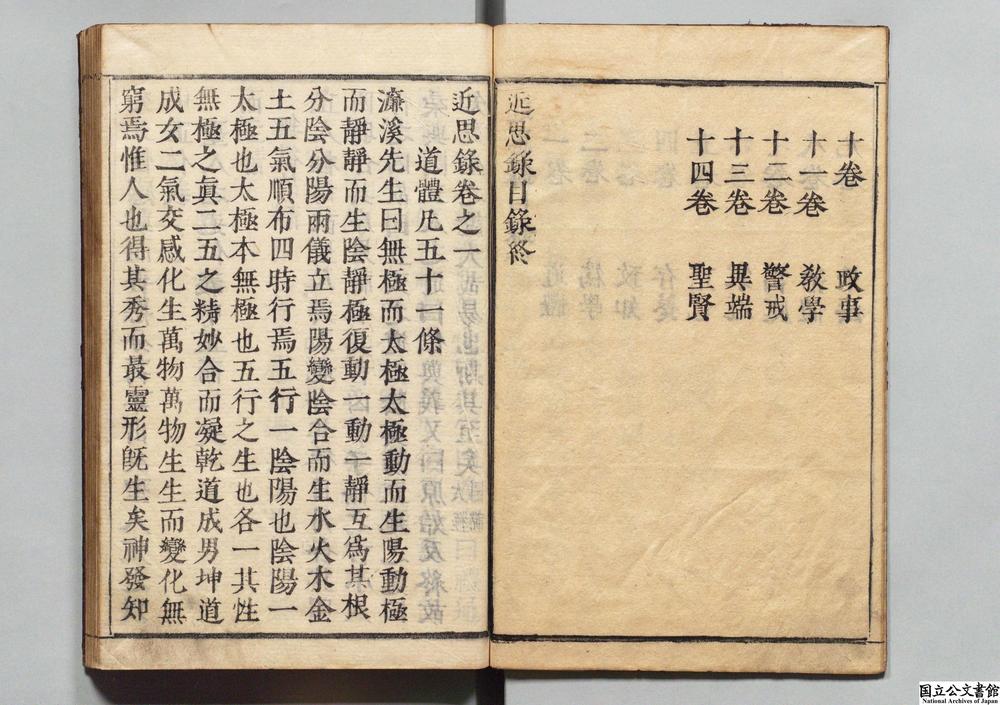 十卷　政事
十一卷　教學
十二卷　警戒
十三卷　異端
十四卷　聖賢
近思錄目錄終
近思錄卷之一
道體凡五十一條
濂溪先生曰無極而太極太極動而生陽動極
而靜靜而生陰靜極復動一動一靜互爲其根
分陰分陽兩儀立焉陽變陰合而生水火木金
土五氣順布四時行焉五行一陰陽也陰陽一
太極也太極本無極也五行之生也各一其性
無極之眞二五之精妙合而凝乾道成男坤道
成女二氣交感化生萬物萬物生生而變化無
窮焉惟人也得其秀而最靈形旣生矣神發知
国立公文書館
National Archives of Japan